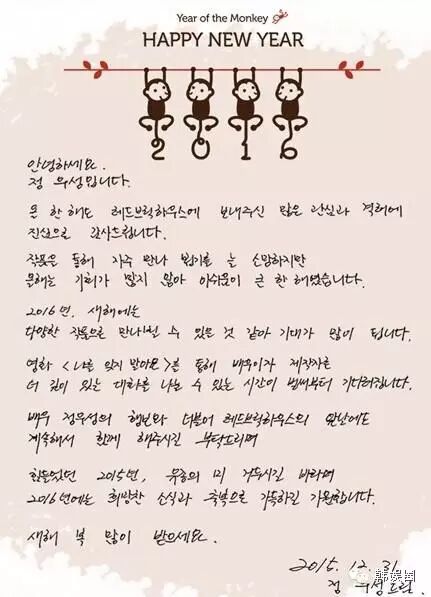 Year of the Monkey
HAPPY NEW YEAR
2016
안녕하세요.
정 우성입니다.
올 한 해도 레드브릭하우스에 보내주신 많은 관심과 격려에
진심으로 감사드립니다.
작품을 통해 자주 만나 뵙기를 늘 소망하지만
올해는 기회가 많지 않아 아쉬움이 큰 한 해였습니다.
2016년, 새해에는
다양한 작품으로 만나뵐 수 있을 것 같아 기대가 많이 됩니다.
영화 <나를 잊지 말아요>를 통해 배우이자 제작자로
더 깊이 있는 대화를 나눌 수 있는 시간이 벌써부터 기다려집니다.
배우 정우성의 행보와 더불어 레드브릭하우스의 앞날에도
계속해서 함께 해주시길 부탁드리며
힘들었던 2015년, 유종의 미 거두시길 바라며
2016년에는 희망찬 소식과 축복으로 가득하길 기원합니다.
새해 복 많이 받으세요.
2015. 12. 31
정 우성 드림
韩娱圈